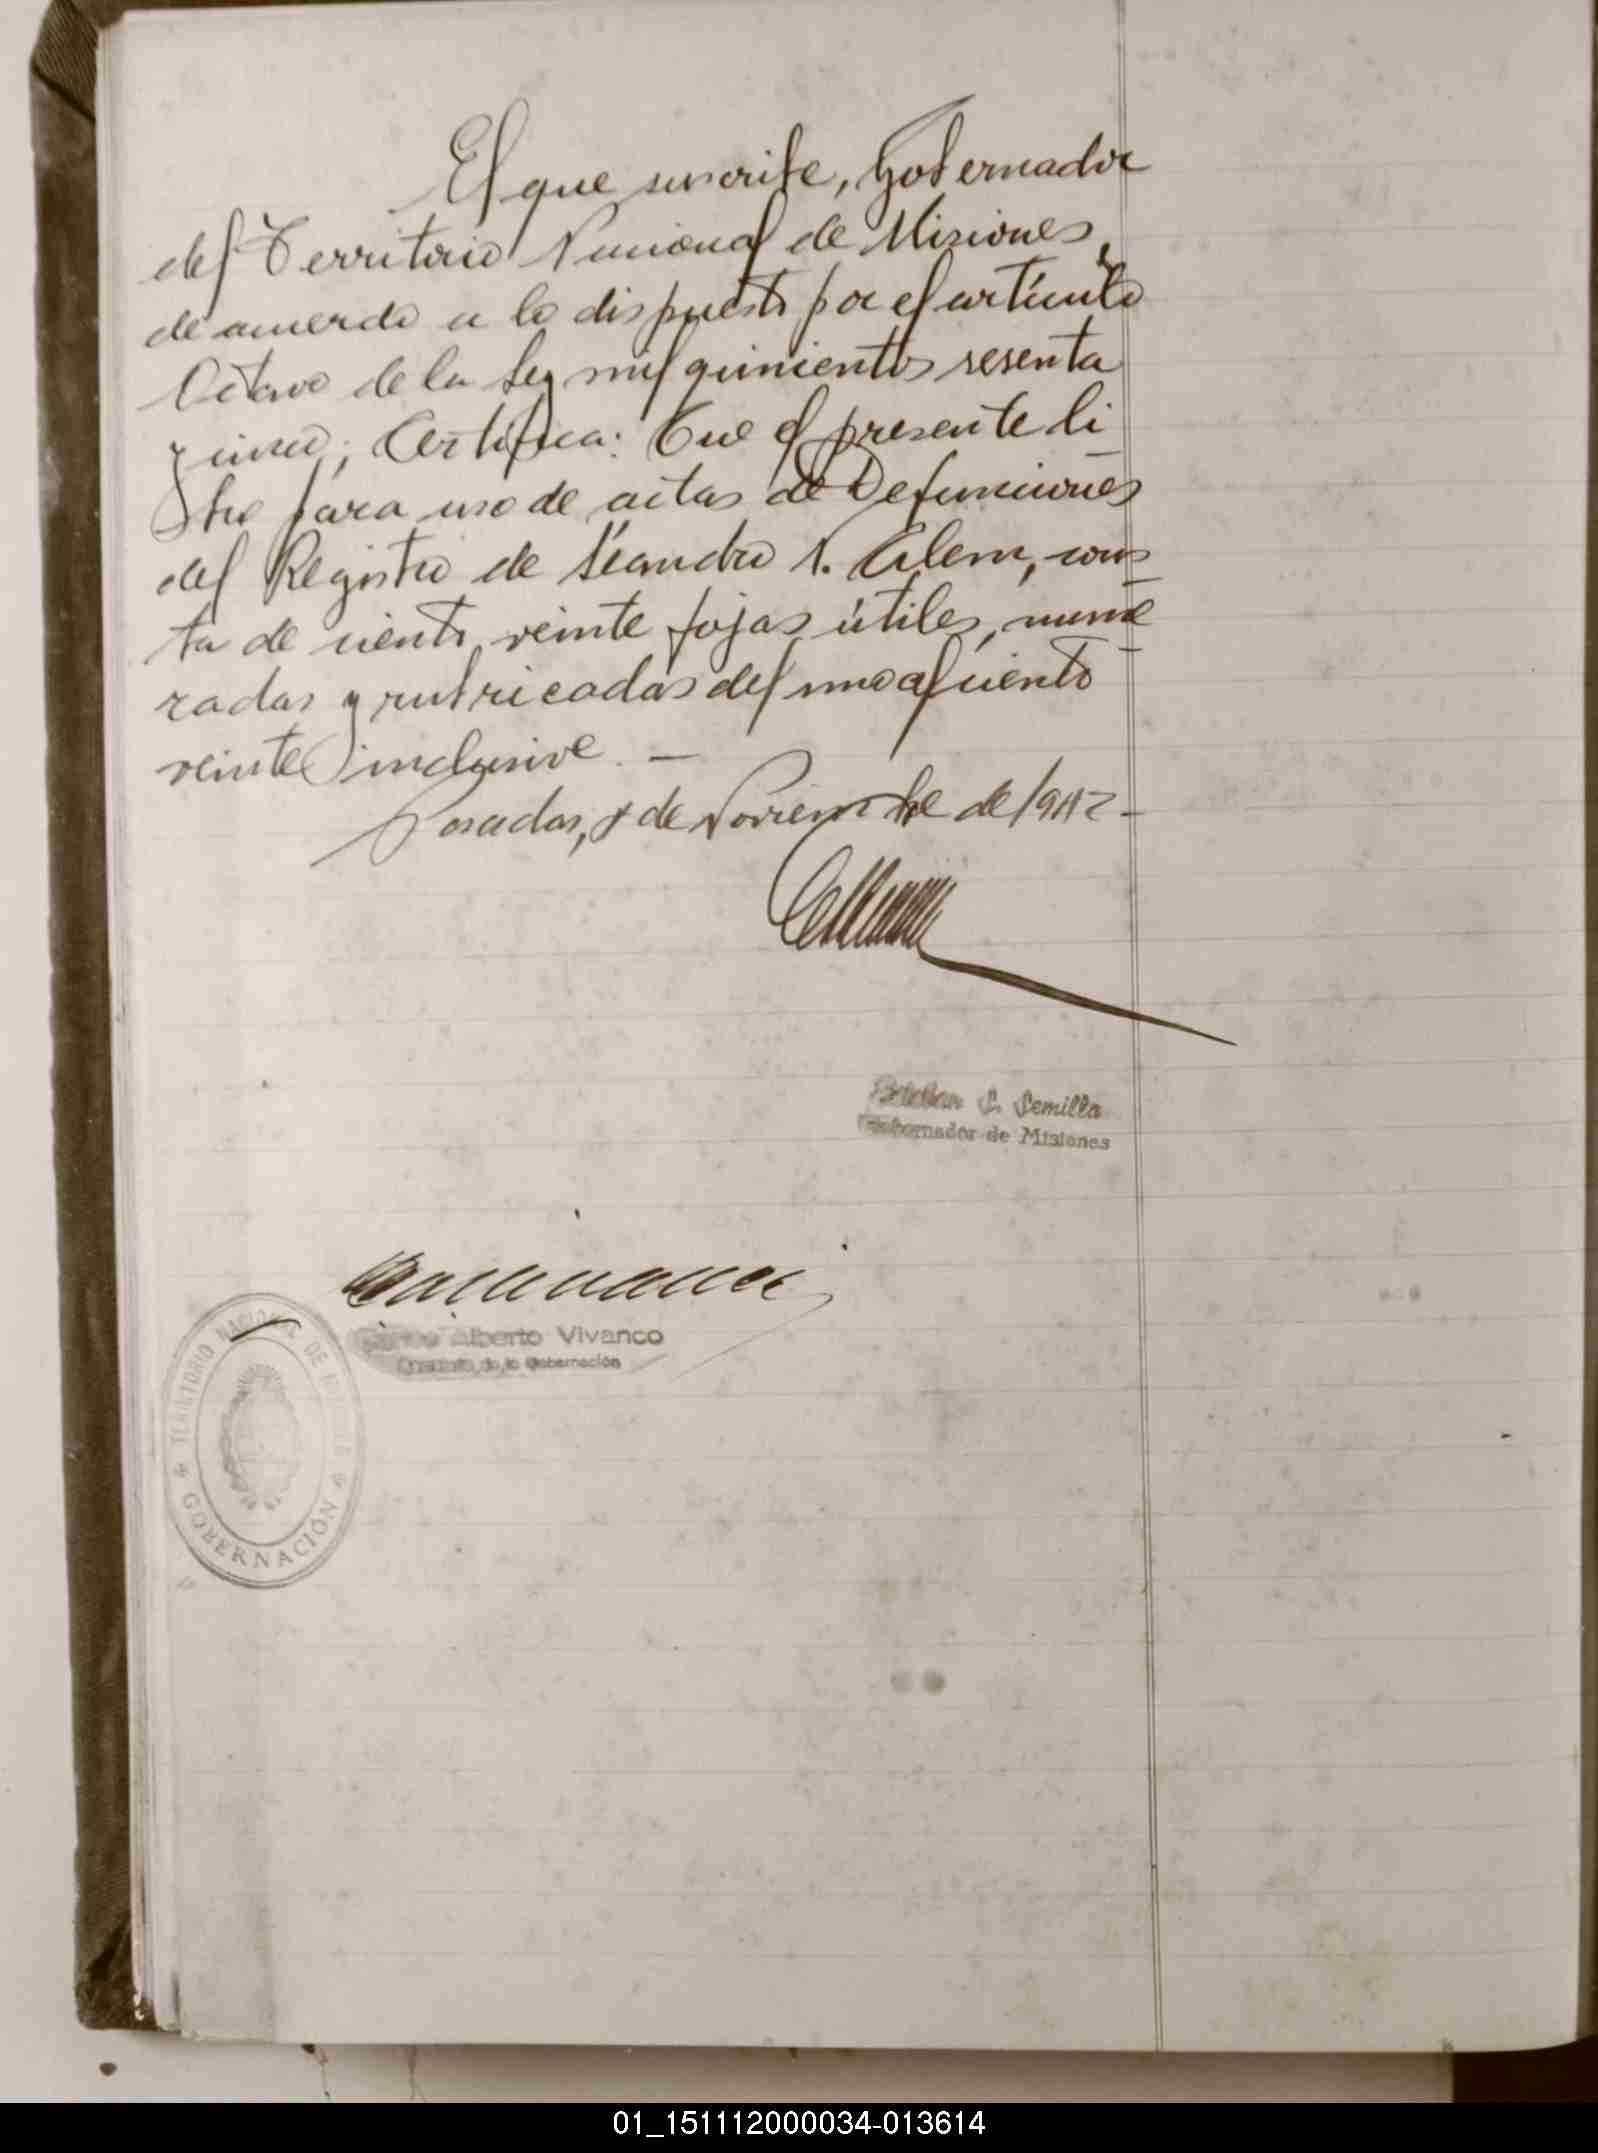 El que suscribe, Gobernador
del Territorio Nacional de Misiones,
de acuerdo a lo dispuesto por el artículo
Octavo de la Ley mil quinientos sesenta
y cinco; Certifica: Que el presente li
bro para uso de actas de Defunciones
del Registro de Leandro N. Alem, cons
ta de ciento veinte fojas útiles, nume
radas y rubricadas del uno al ciento
veinte inclusive. —
Posadas, de Noviembre de 1942-
S. Semilla
Gobernador de Misiones
Alberto Vivanco
de la Gobernación
TERRITORIO NACIONAL DE MISIONES
GOBERNACIÓN
01_151112000034-013614